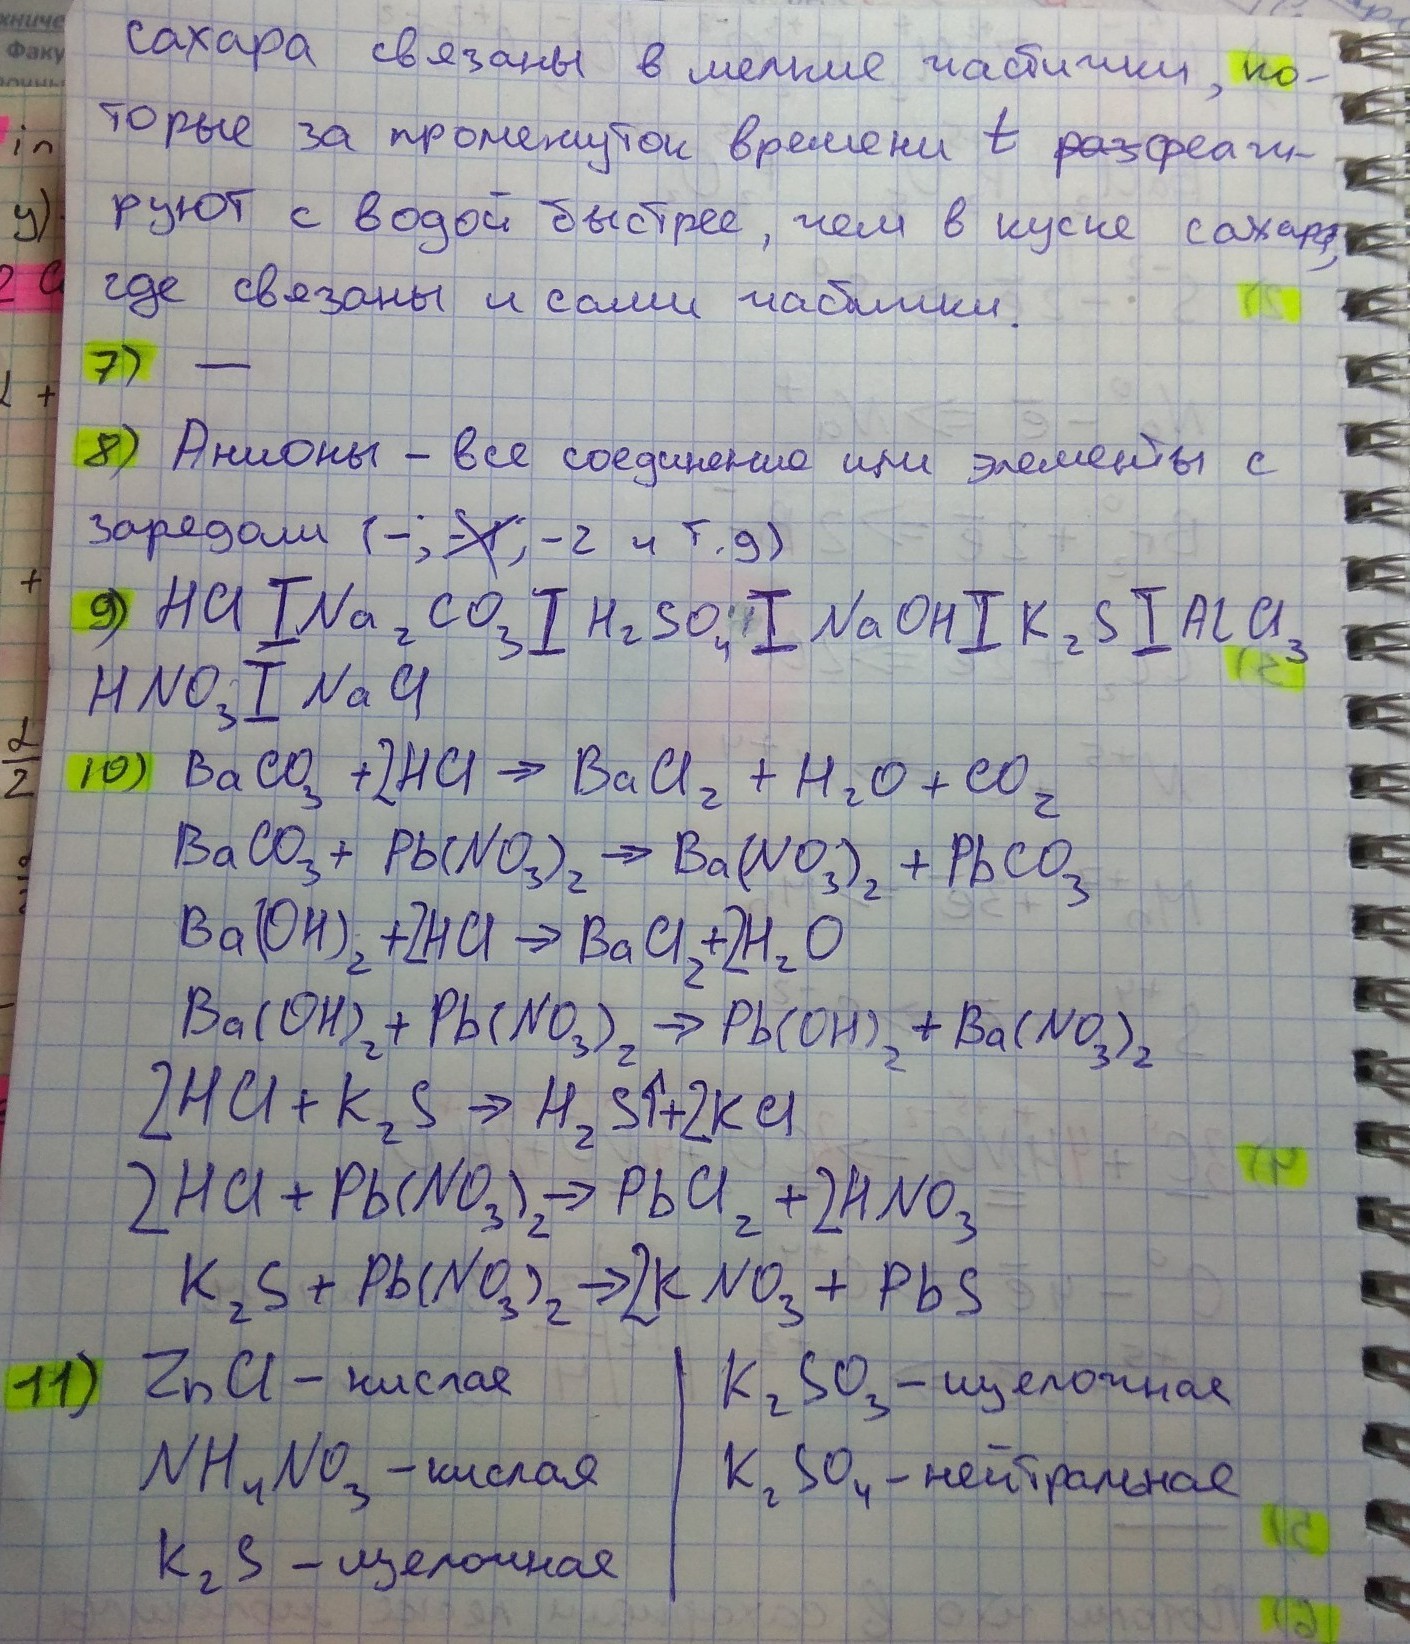 хниче
Факу
in
у)
сахара связаны в мелкие частички, ко-
торые за промежуток времени t разфеаги-
руют с водой быстрее, чем в куске сахара,
где связаны и сами частички.
7) —
8) Анионы – все соединение или элементы с
зарядами (-; -1; -2 и т.д)
9) HCl I Na₂CO₃ I H₂SO₄ I NaOH I K₂S I AlCl₃
HNO₃ I NaCl
10) BaCO₃ + 2HCl → BaCl₂ + H₂O + CO₂
BaCO₃ + Pb(NO₃)₂ → Ba(NO₃)₂ + PbCO₃
Ba(OH)₂ + 2HCl → BaCl₂ + 2H₂O
Ba(OH)₂ + Pb(NO₃)₂ → Pb(OH)₂ + Ba(NO₃)₂
2HCl + K₂S → H₂S↑ + 2KCl
2HCl + Pb(NO₃)₂ → PbCl₂ + 2HNO₃
K₂S + Pb(NO₃)₂ → 2KNO₃ + PbS
11) ZnCl – кислая | K₂SO₃ – щелочная
NH₄NO₃ – кислая | K₂SO₄ – нейтральная
K₂S – щелочная